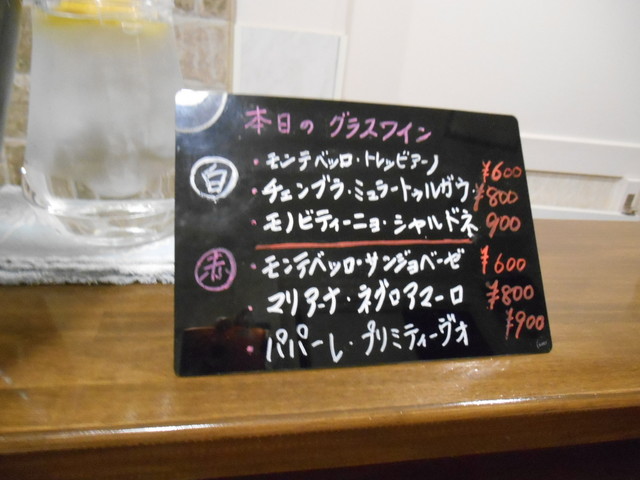 本日の グラスワイン
白
・モンテベッロ・トレッビアーノ ¥600
・チェンブラ・ミュラートゥルガウ・ ¥800
・モノビティーニョ・シャルドネ 900
赤
・モンテベッロ・サンジョベーゼ ¥600
・マリアーナ・ネグロアマーロ ¥800
・パパーレ・プリミティーヴォ ¥900